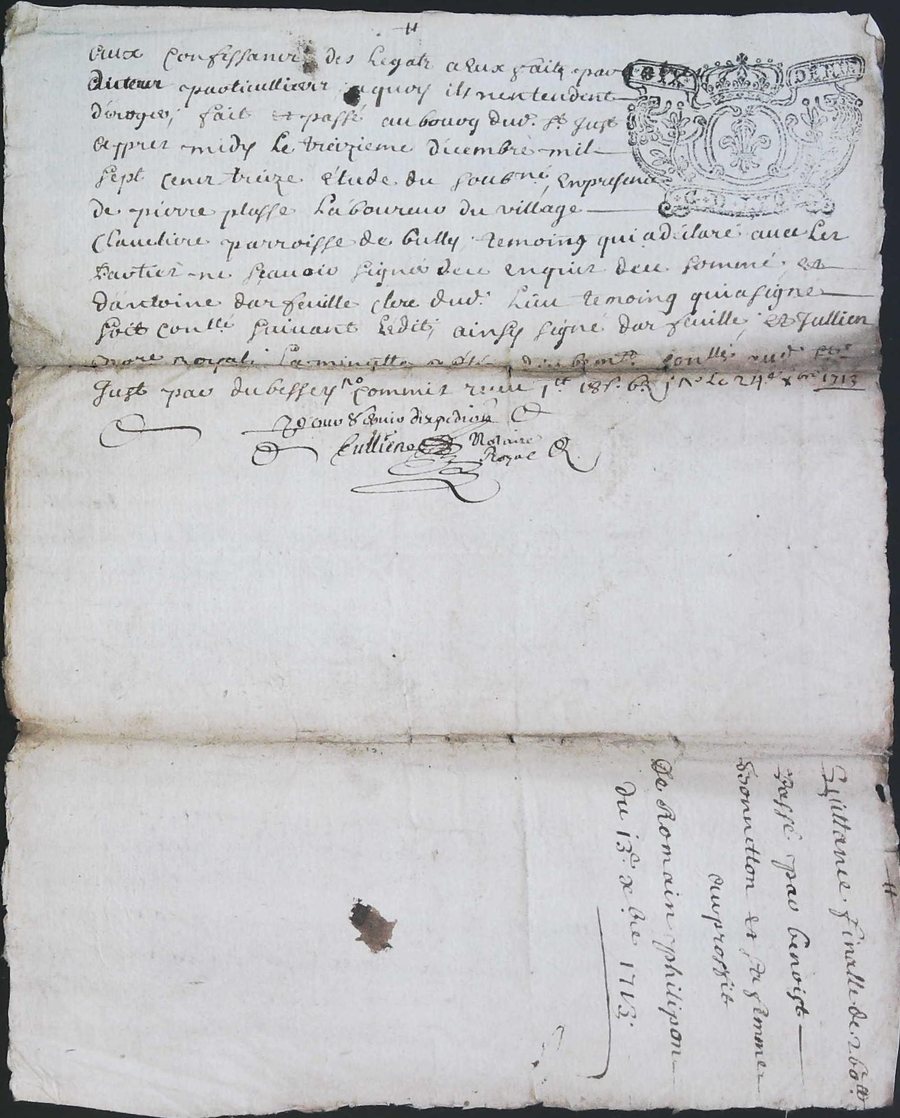 SIX DENIERS
G. D. LYON
aux confessanc des legats a eux faits par
aucteur particulliere aquoy ils nentendent
deroger, fait et passé aubourg dud. St. Just
appres midy le treizieme décembre mil
sept cents treize etude du soubné, en presence
de pierre plasse laboureur du village
Claveliere parroisse de bully, temoing qui a déclaré avec les
parties ne scavoir signer de ce enquis de ce sommé, et
dantoine darfeuille clerc dud. lieu temoing qui a signé
soit conllé suivant ledit, ainsy signé darfeuille, et Jullien
nore Royal, la minutte a été conllé aud. St.
Just par dubessey commis recu 1713
expedié
Jullien Notaire
Royal
Quittance finalle de 260ll
Passé par benoist
Bonnetton et sa femme
auproffit
De Romain philipon
du 13e xbre 1713